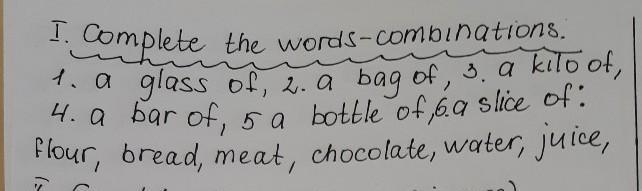 I. Complete the words-combinations.
1. a glass of, 2. a bag of, 3. a kilo of,
4. a bar of, 5 a bottle of, 6. a slice of:
flour, bread, meat, chocolate, water, juice,